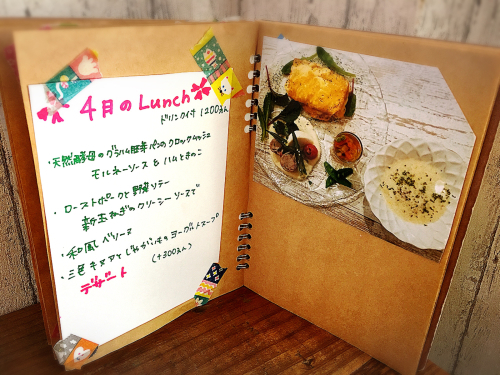 4月のLunch
ドリンク付 1200えん
・天然酵母のグラハム胚芽パンのクロックムッシュ
モルネーソースとハムときのこ
・ローストポークと野菜ソテー
新玉ねぎのクリーシーソースで
・和風ベリーヌ
・三色キヌアとじゃがいものヨーグルトスープ
(+300えん)
デザート